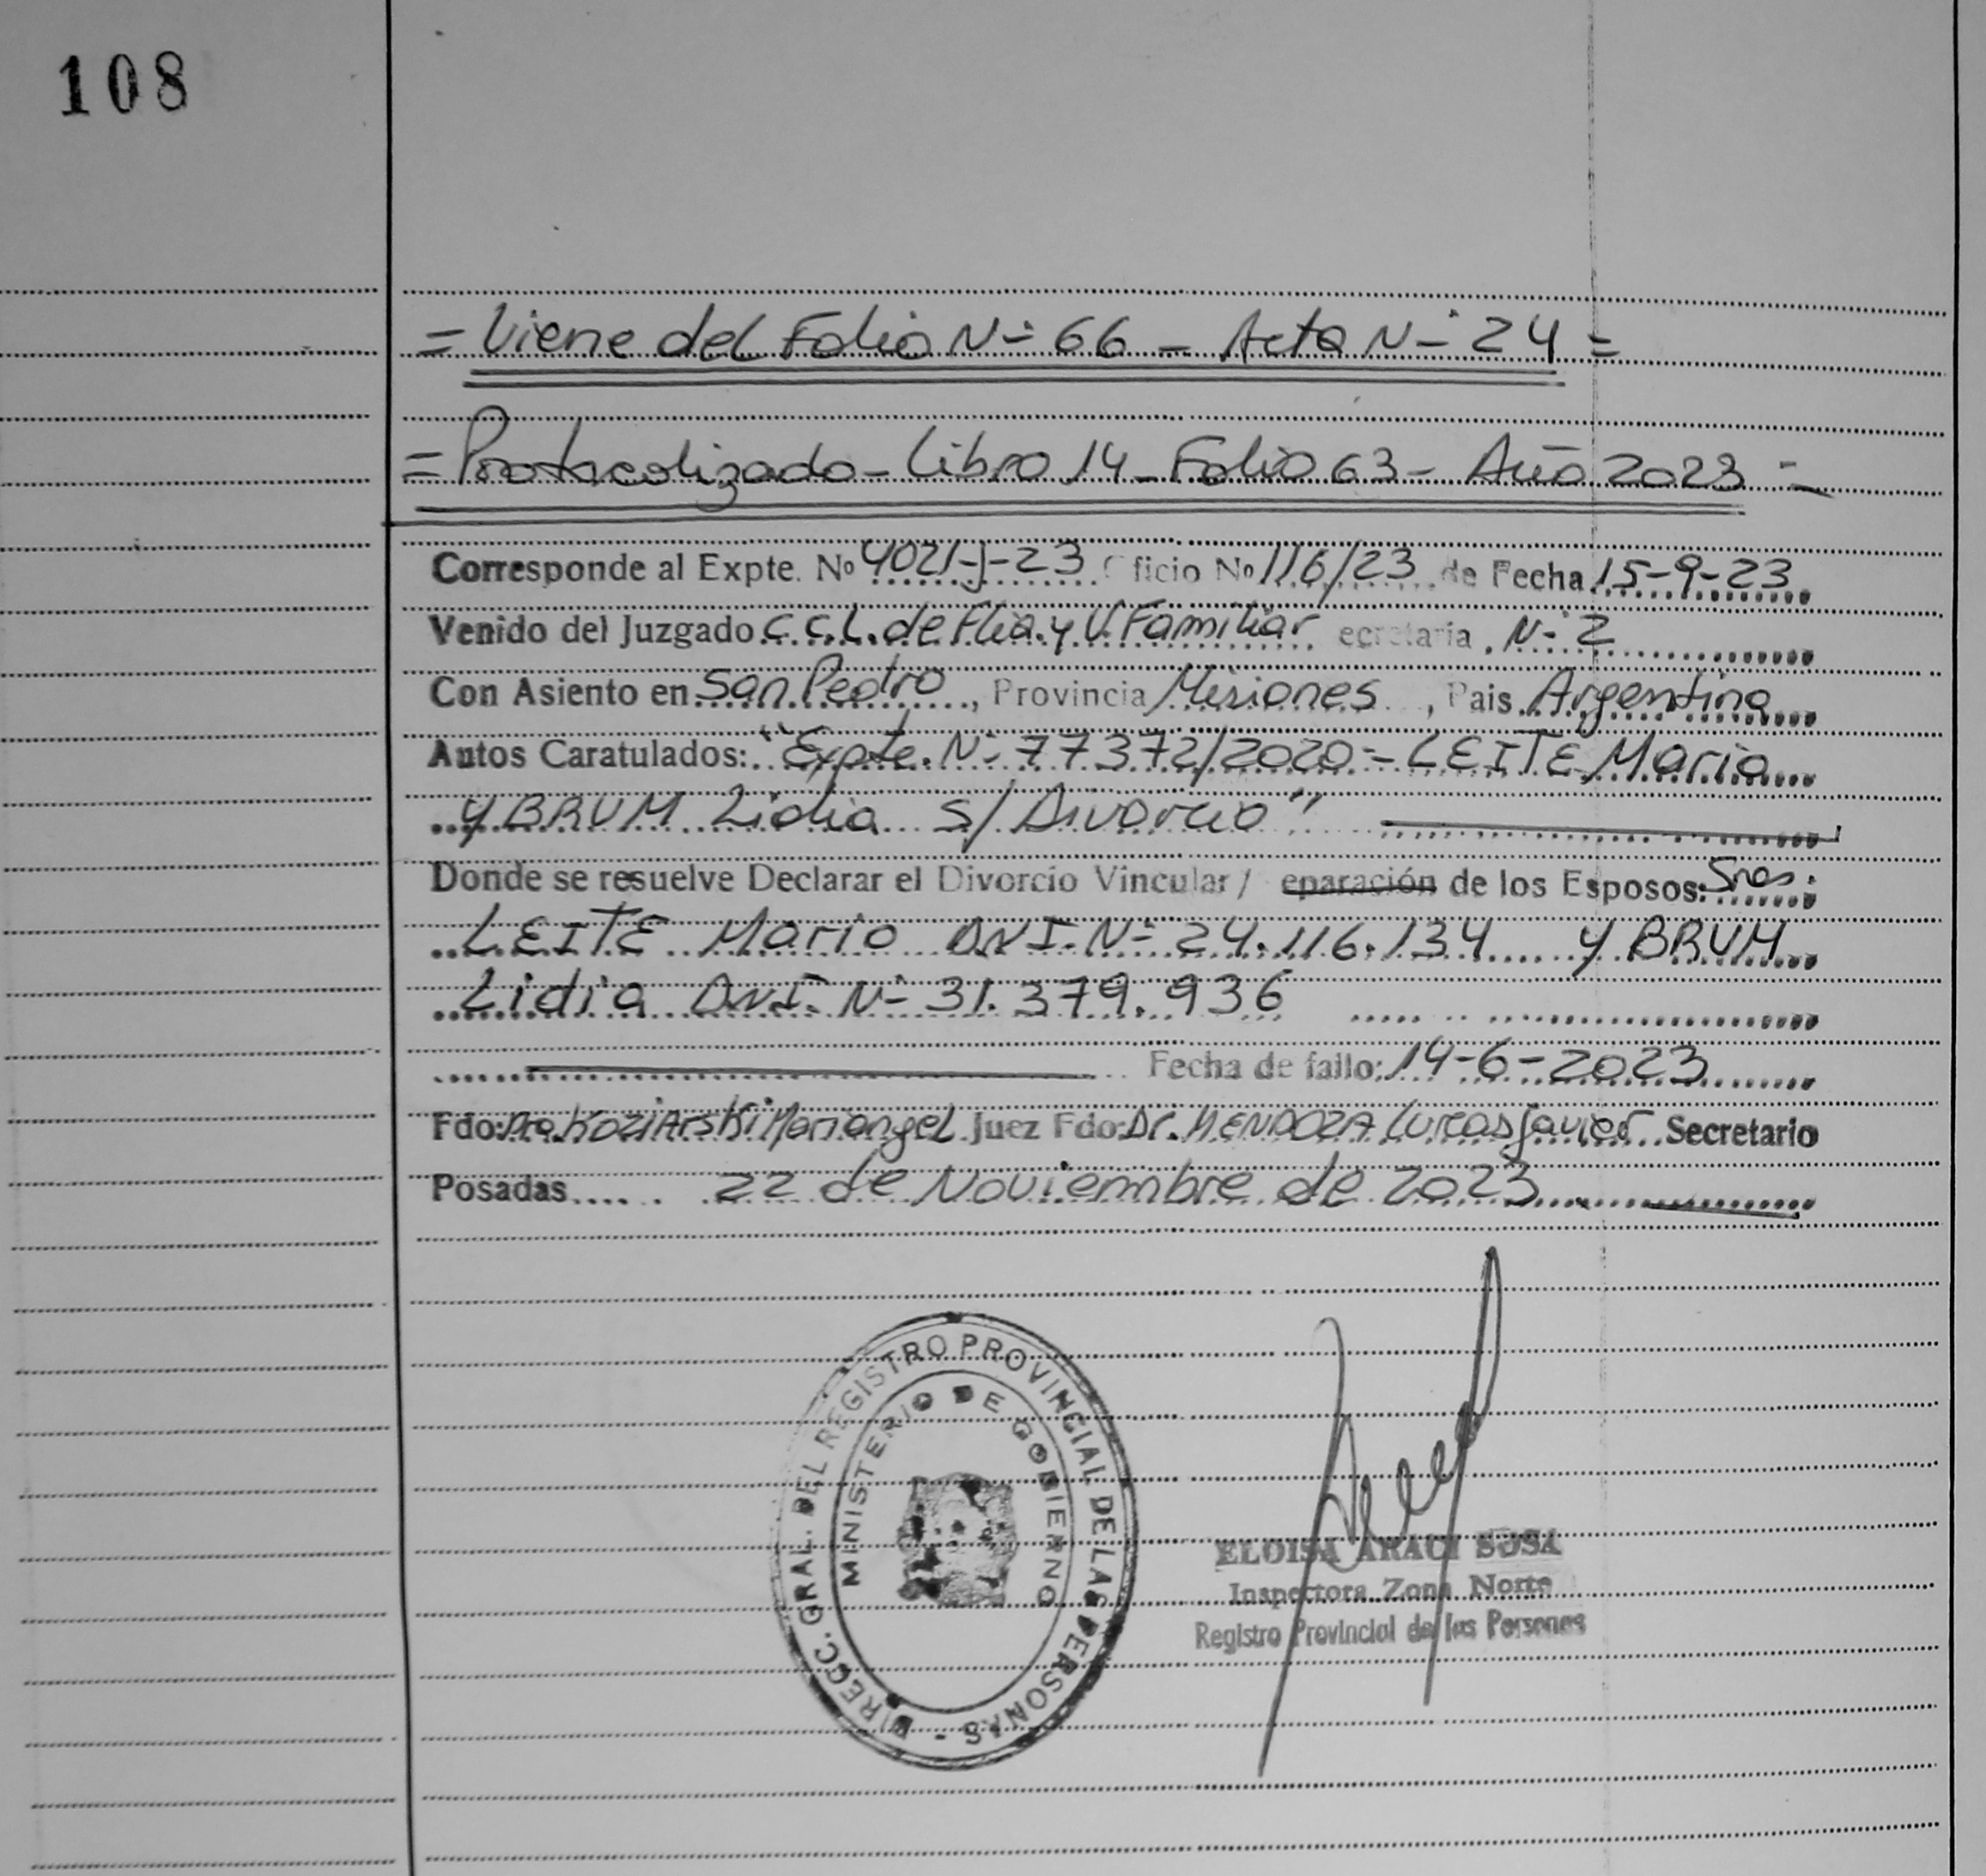 108
= Viene del Folio N° 66 - Acta N° 24 =
= Protocolizado - Libro 14 - Folio 63 - Año 2023 =
Corresponde al Expte. No 4021-J-23 Oficio No 116/23 de Fecha 15-9-23
Venido del Juzgado C.C.L. de Flia. y V. Familiar ecretaria N° 2
Con Asiento en San Pedro, Provincia Misiones, Pais Argentina
Autos Caratulados: "Expte. N° 77372/2020 - LEITE Mario
y BRUM Lidia s/ Divorcio"
Donde se resuelve Declarar el Divorcio Vincular / eparación de los Esposos: Sres.
LEITE Mario DNI. N° 24.116.134 y BRUM
Lidia DNI. N° 31.379.936
Fecha de fallo: 14-6-2023
Fdo: Dra. Koziarski Mariangel Juez Fdo: Dr. MENDOZA Lucas Javier Secretario
Posadas 22 de Noviembre de 2023
DIRECC. GRAL. DEL REGISTRO PROVINCIAL DE LAS PERSONAS -
MINISTERIO DE GOBIERNO
ELOISA ARACI SOSA
Inspectora Zona Norte
Registro Provincial de las Personas